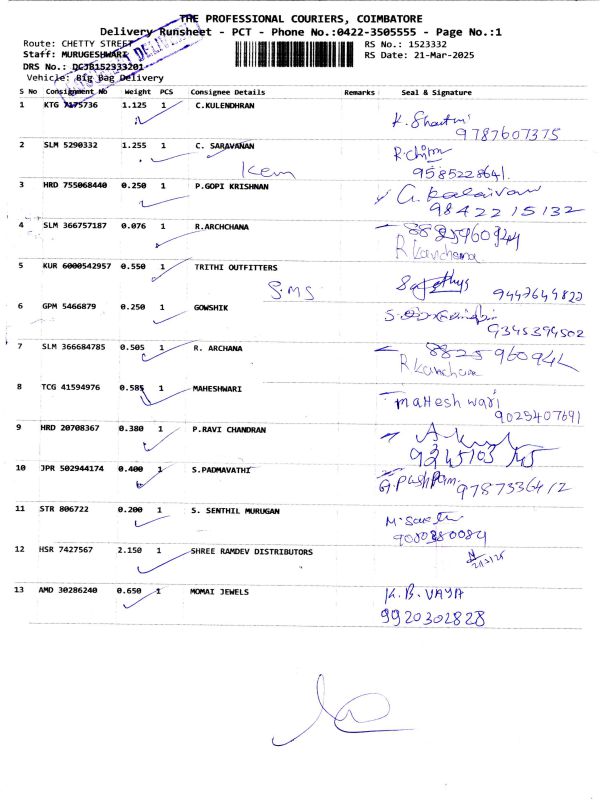 THE PROFESSIONAL COURIERS, COIMBATORE
Delivery Runsheet - PCT - Phone No.:0422-3505555 - Page No.:1
Route: CHETTY STREET
RS No.: 1523332
Staff: MURUGESHWARI
RS Date: 21-Mar-2025
DRS No.: DCJB152333201
Vehicle: Big Bag Delivery
S No Consignment Nb Weight PCS Consignee Details Remarks Seal & Signature
1 KTG 7175736 1.125 1 C.KULENDHRAN
9787607375
2 SLM 5290332 1.255 1 C. SARAVANAN
Kem
9585228641.
3 HRD 755068440 0.250 1 P.GOPI KRISHNAN
9842215132
4 SLM 366757187 0.076 1 R.ARCHCHANA
5 KUR 6000542957 0.550 1 TRITHI OUTFITTERS
S.MS
9447644822
6 GPM 5466879 0.250 1 GOWSHIK
9345394502
7 SLM 366684785 0.505 1 R. ARCHANA
8 TCG 41594976 0.585 1 MAHESHWARI
maHesh wari
9025407691
9 HRD 20708367 0.380 1 P.RAVI CHANDRAN
10 JPR 502944174 0.400 1 S.PADMAVATHI
9787336412
11 STR 806722 0.200 1 S. SENTHIL MURUGAN
12 HSR 7427567 2.150 1 SHREE RAMDEV DISTRIBUTORS
13 AMD 30286240 0.650 1 MOMAI JEWELS
K.B. VAYA
9920302828